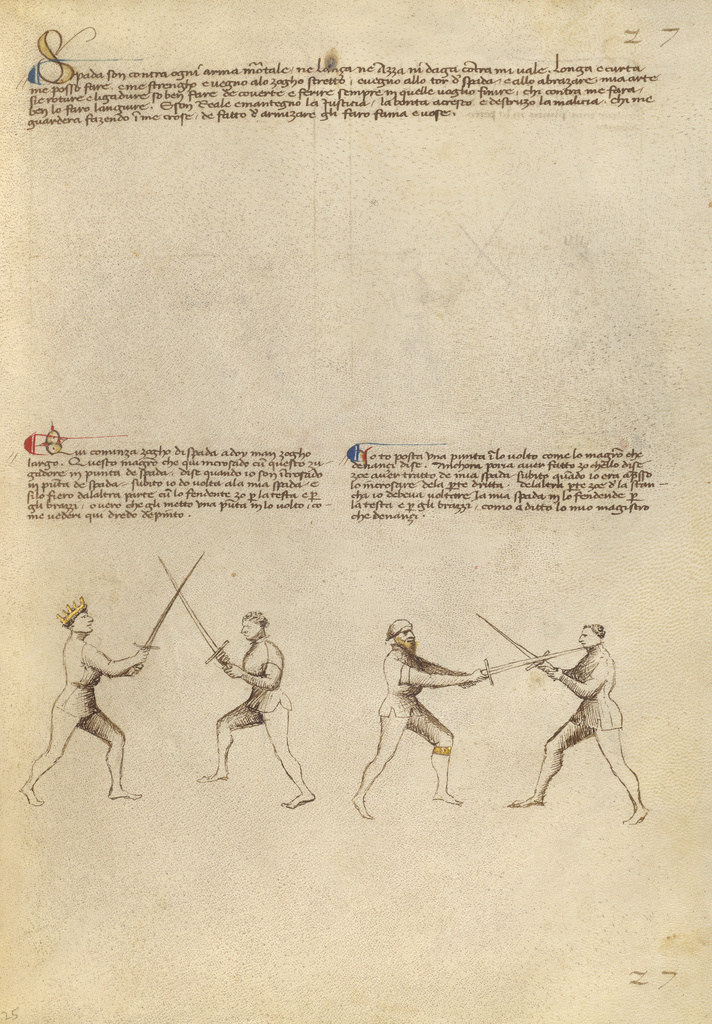 27
Spada son contra ogni arma mortale, ne lança ne Azza ni daga contra mi vale. Longa e curta
me posso fare, e me strengho e vegno alo zogho stretto, e vegno allo tor d'spada, e allo abrazare, mia arte
sie roture e ligadure so ben fare de coverte e ferire sempre in quelle voglio finire, chi contra me fara,
ben lo faro languire. E son Reale e mantegno la justicia, la bonta acresco e destruzo la malicia. Chi me
guardera fazendo i me crose, de fatto d'armizare gli faro fama e vose.
Qui cominza zogho di spada a doy man zogho
largo. Questo magro che qui incrosado cum questo zu-
gadore in punta de spada, dise quando io son incrosado
in punta de spada, subito io do volta ala mia spada e
si lo fiero dalaltra parte cum lo fendente zo per la testa e per
gli brazzi, overo che gli metto una punta in lo volto, co-
me vederi qui dredo depinto.
Io to posta una punta in lo volto come lo magro che
denançi dise. Anchora poria aver fatto zo chello dise
zoe aver tratto de mia spada subito quado io era apsso
lo incrosare dela pte dritta. Delaltra pte zoe d'la stan-
cha io debeva voltare la mia spada in lo fendende p
la testa e p gli brazzi, como a ditto lo mio magistro
che denançi.
27
25